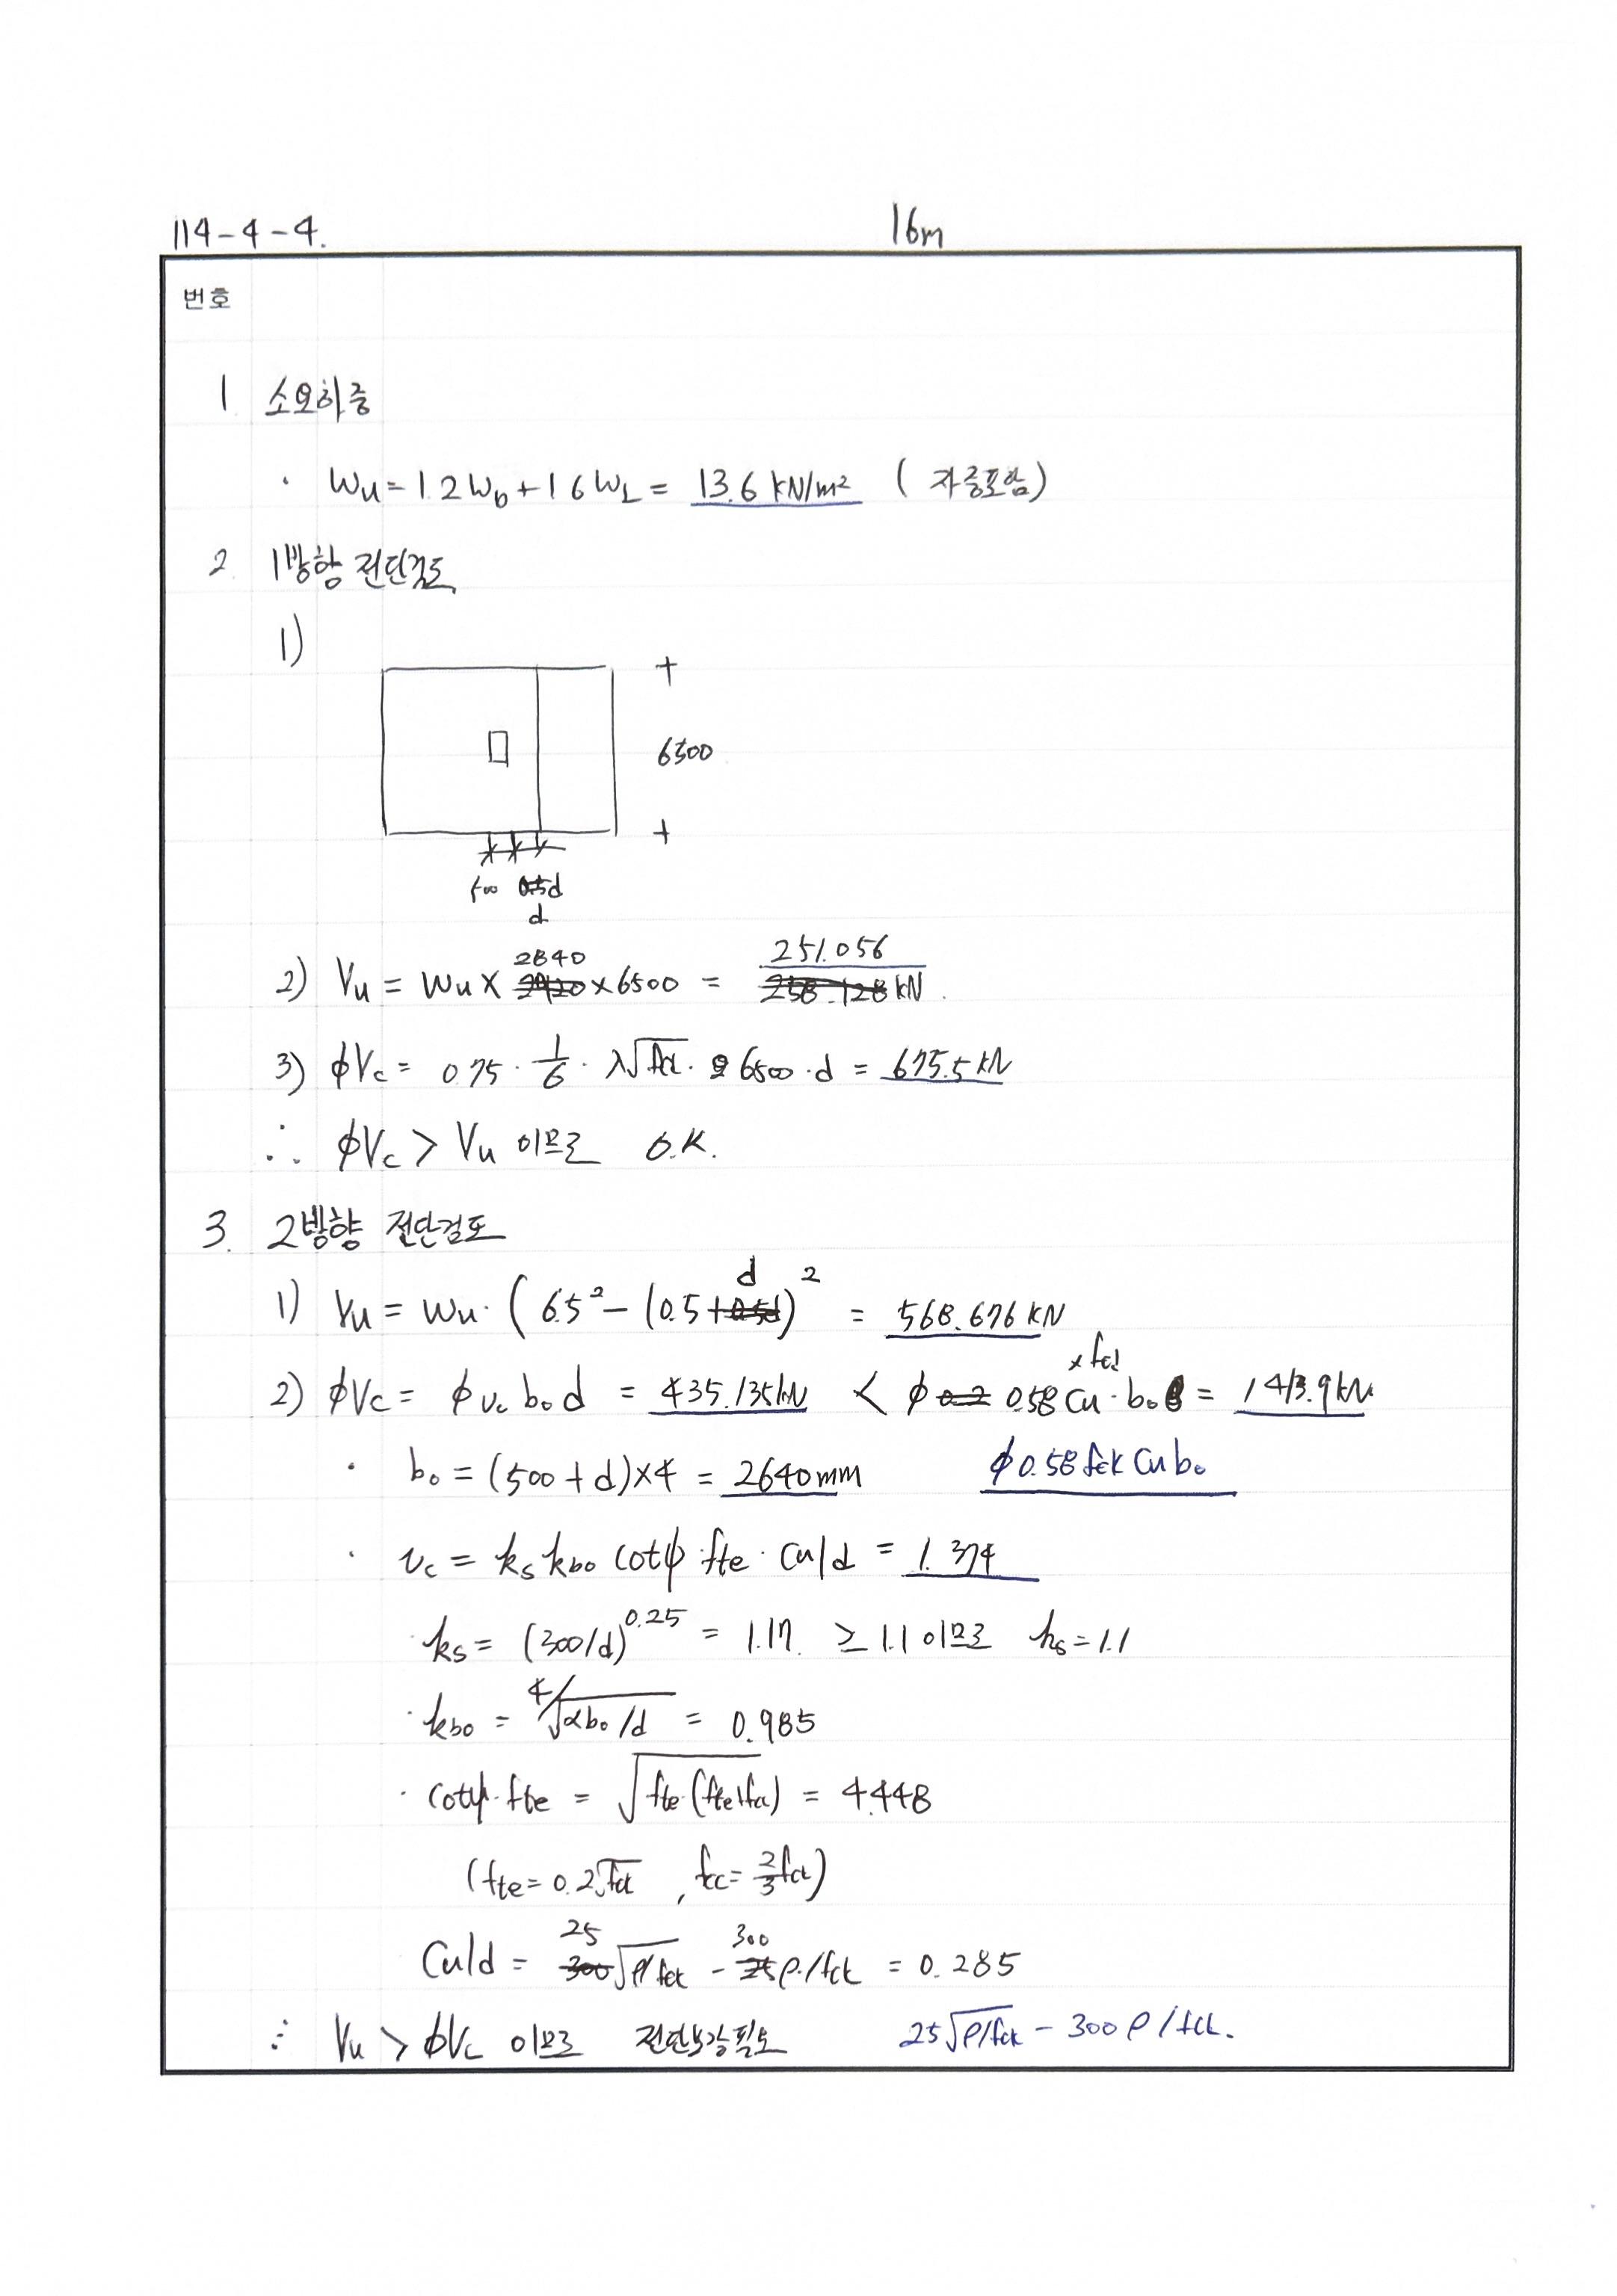 114-4-4.
16m
번호
1 소요하중
· Wu = 1.2WD + 1.6WL = 13.6 kN/m² (자중포함)
2. 1방향 전단검토
1)
6500
500 0.5d
d
2840 251.056
2) Vu = Wu × 2920 × 6500 = 258.128 kN.
3) φVc = 0.75 · 1/6 · λ√fck · 6500 · d = 675.5 kN
∴ φVc > Vu 이므로 O.K.
3. 2방향 전단검토
d
1) Vu = Wu · (6.5² - (0.5+0.5d)² = 568.676 kN
× fck
2) φVc = φ vc bo d = 435.135kN < φ 0.2 0.58 Cu · bo = 1413.9kN
· bo = (500+d)×4 = 2640mm φ0.58 fck Cu bo
· vc = ks kbo cotψ · fte · Cu/d = 1.374
· ks = (300/d)^0.25 = 1.17. ≥ 1.1 이므로 ks = 1.1
· kbo = ⁴√αbo/d = 0.985
· cotψ · fte = √fte(fte+fcc) = 4.448
(fte = 0.2√fck , fcc = 2/3 fck)
25 300
Cu/d = 300√ρ/fck - 25ρ/fck = 0.285
∴ Vu > φVc 이므로 전단보강필요 25√ρ/fck - 300 ρ/fck.